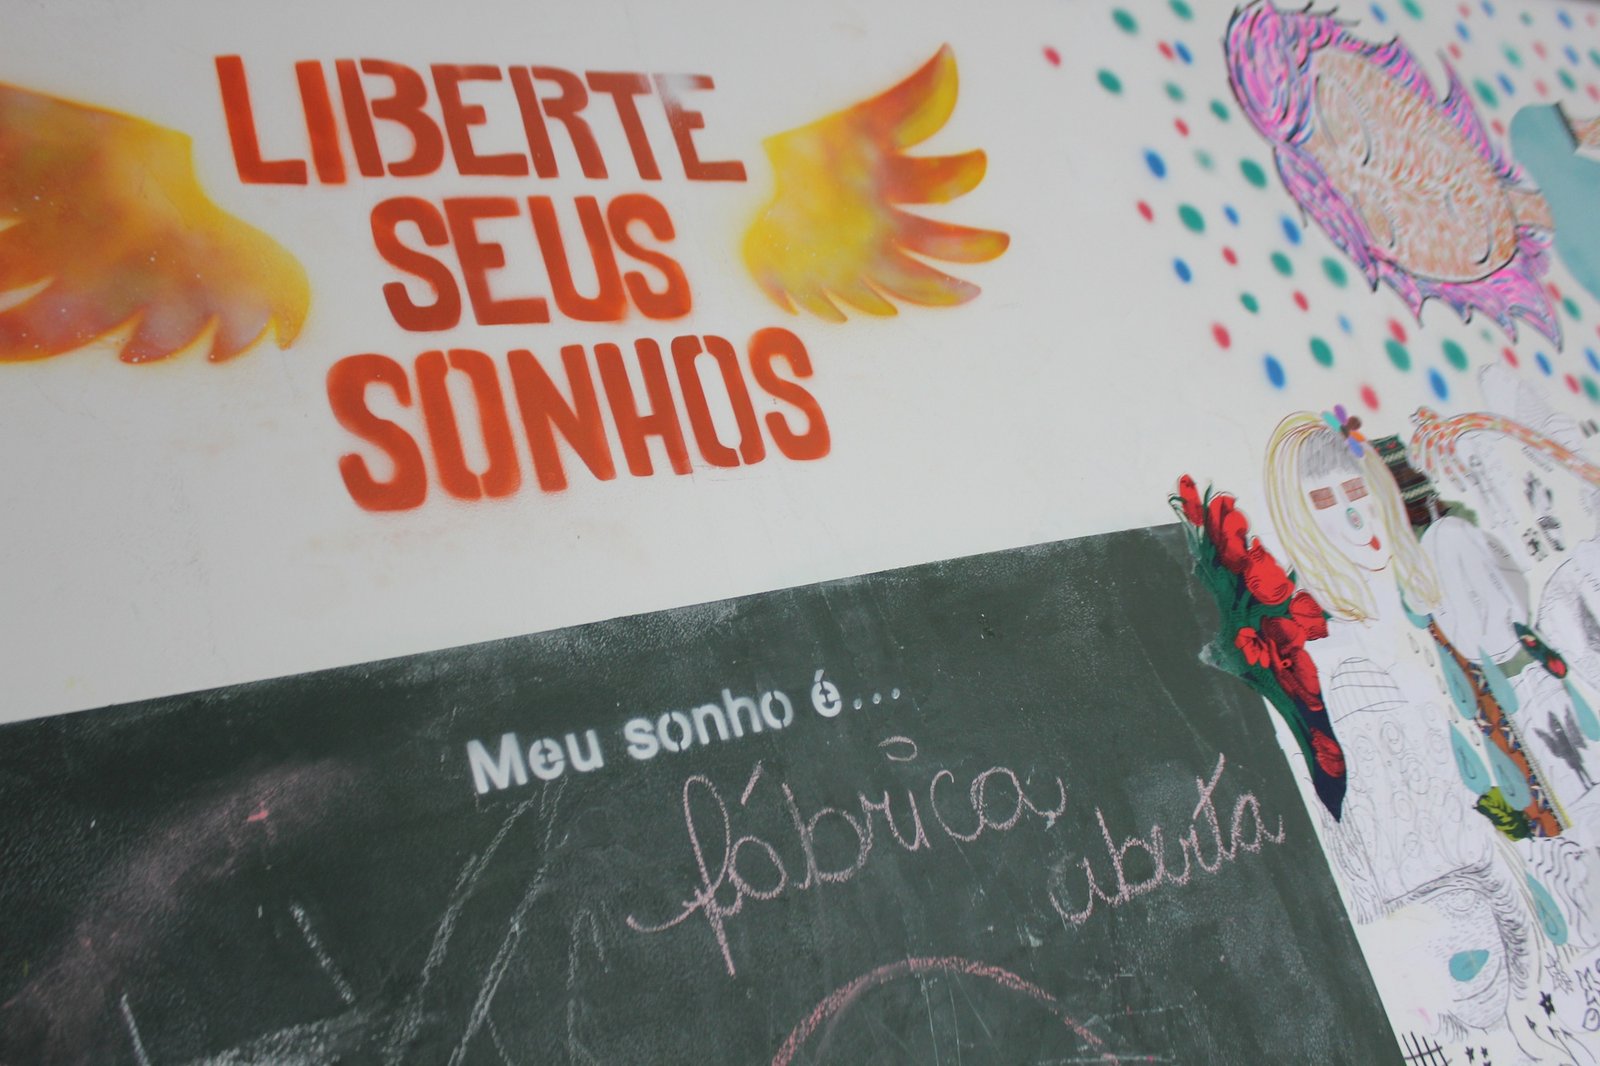 LIBERTE
SEUS
SONHOS
Meu sonho é...
fábrica
aberta